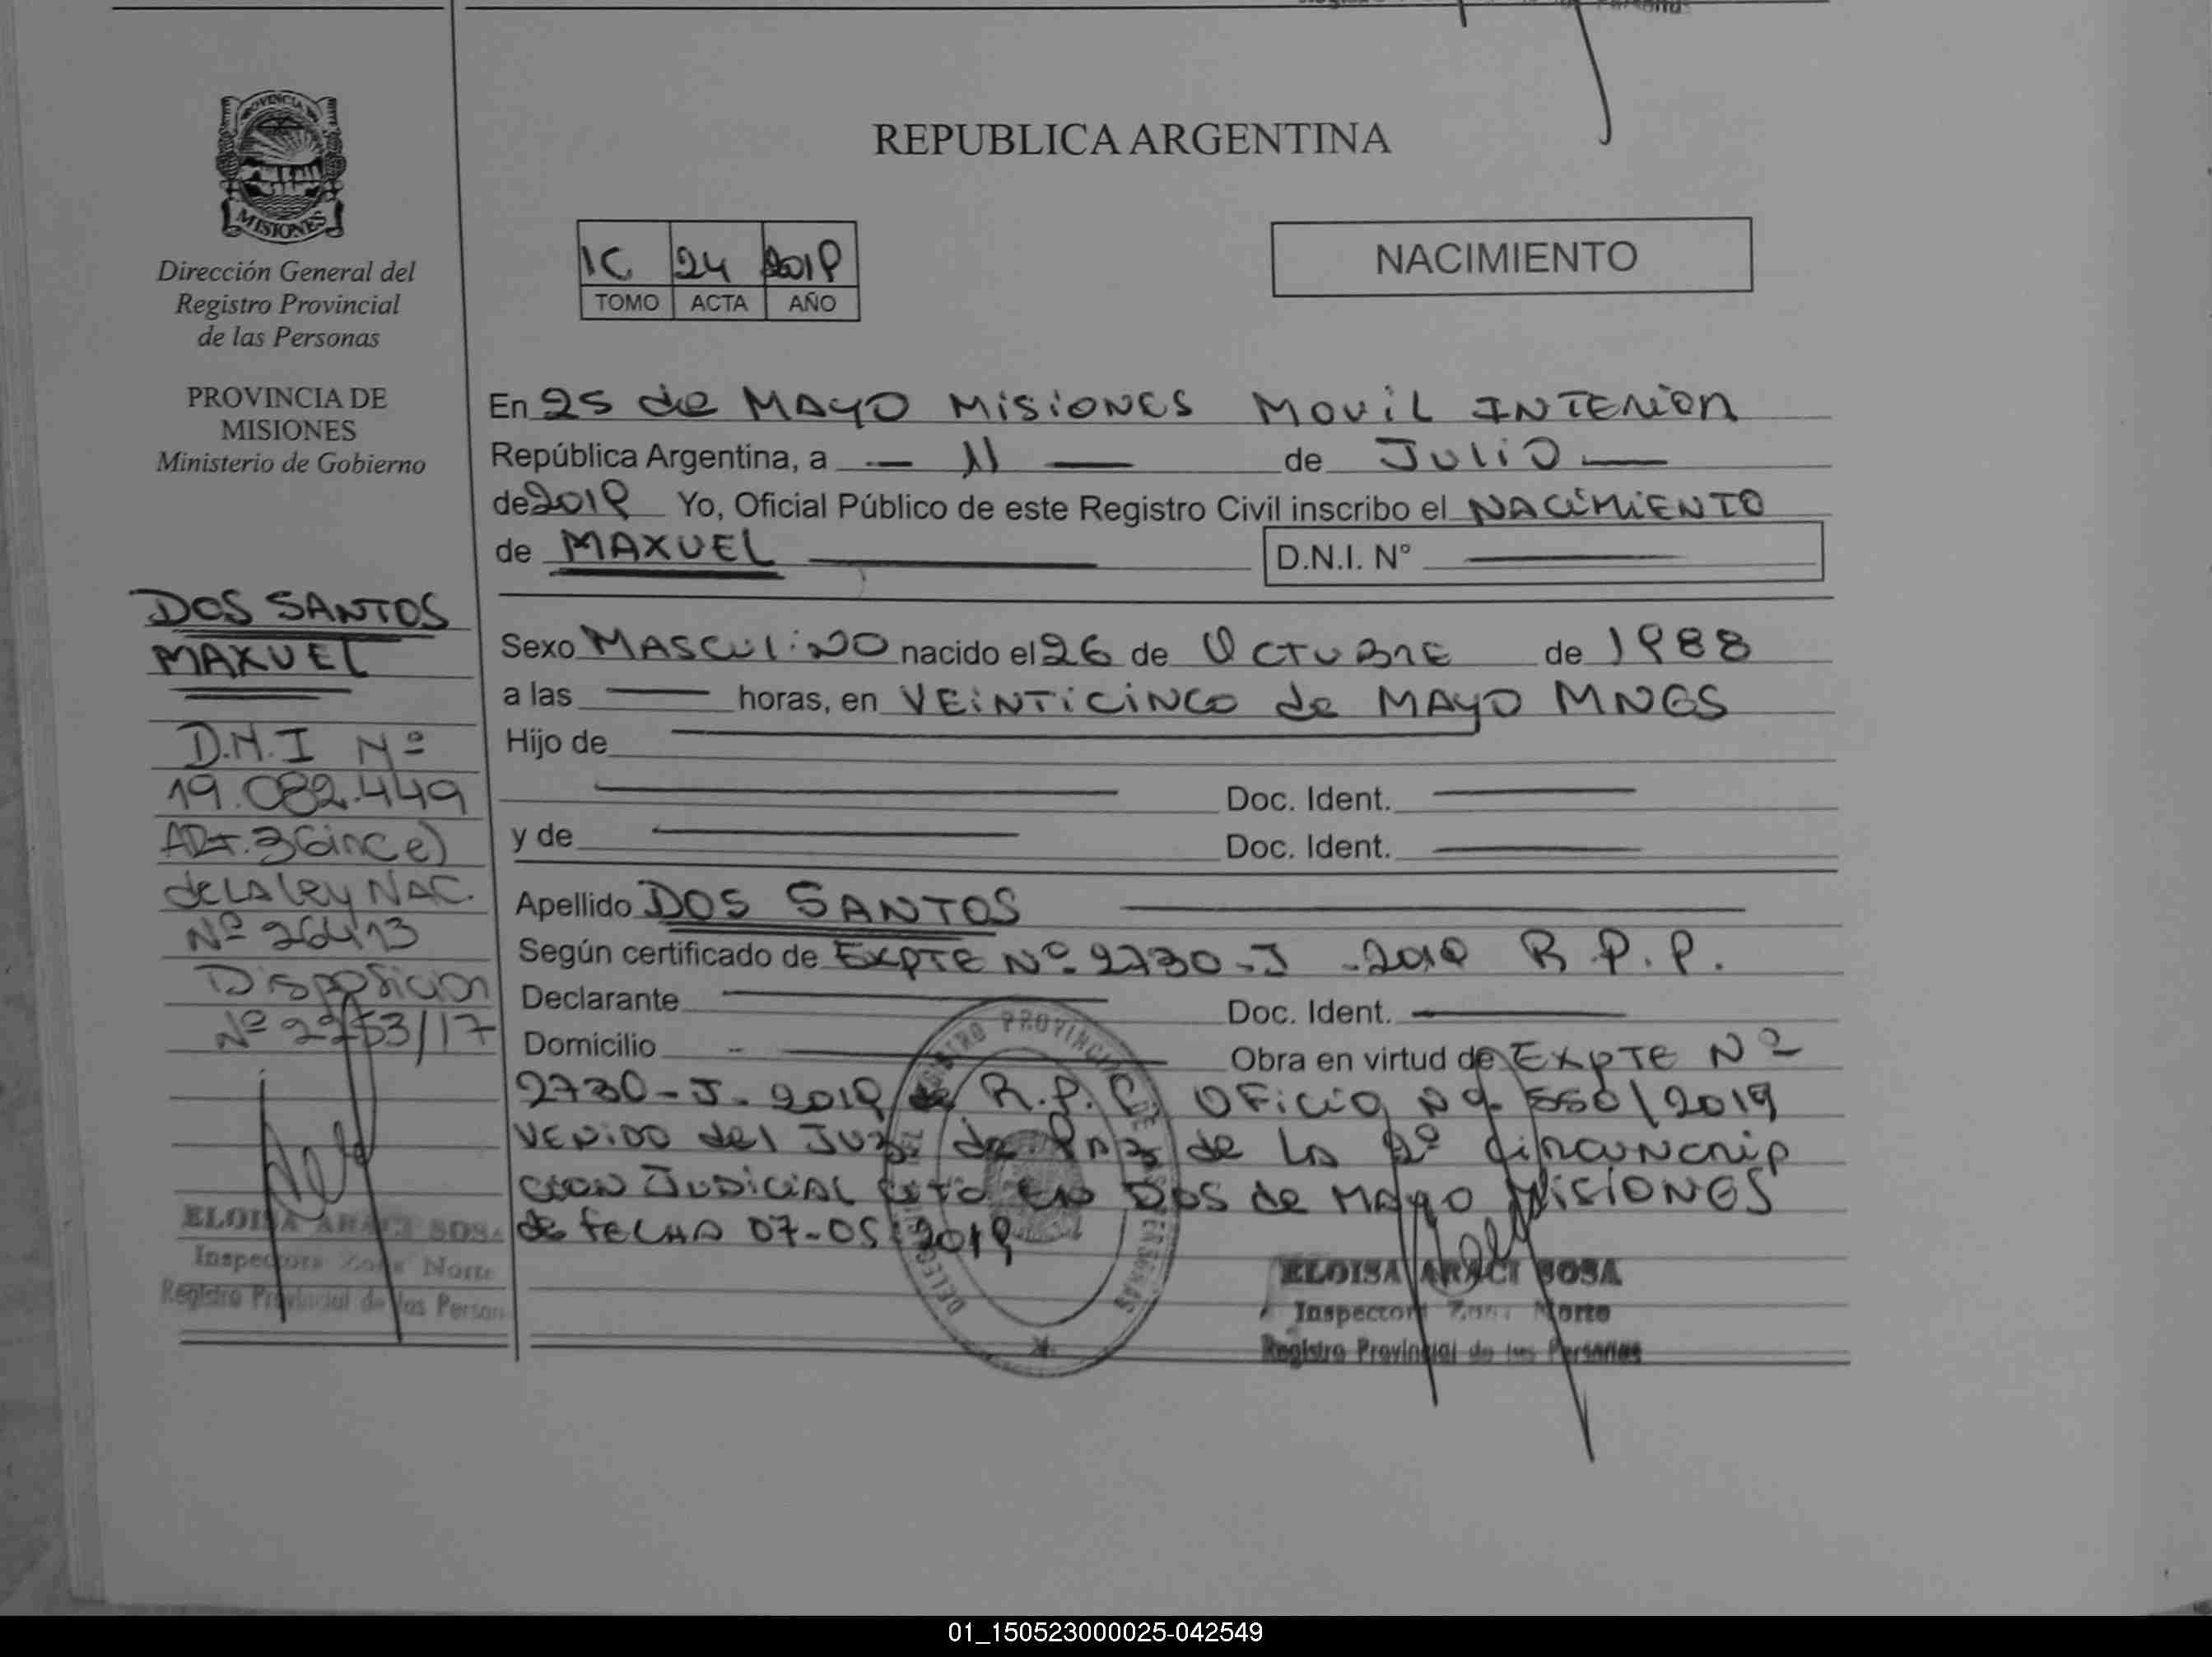 PROVINCIA DE
MISIONES
Dirección General del
Registro Provincial
de las Personas
PROVINCIA DE
MISIONES
Ministerio de Gobierno
DOS SANTOS
MAXUEL
D.N.I Nº
19.082.449
ART. 36 inc e)
de LA ley NAC.
Nº 26413
Disposicion
ELOISA ARACI SOSA
Inspectora Zona Norte
Registro Provincial de las Person
REPUBLICA ARGENTINA
1C 24 2019
TOMO ACTA AÑO
NACIMIENTO
En 25 de MAYO MISIONES MOVIL INTERIOR
República Argentina, a 11 de JULIO
de 2019 Yo, Oficial Público de este Registro Civil inscribo el NACIMIENTO
de MAXUEL D.N.I. N°
Sexo MASCULINO nacido el 26 de OCTUBRE de 1988
a las horas, en VEINTICINCO de MAYO MNES
Hijo de
Doc. Ident.
y de Doc. Ident.
Apellido DOS SANTOS
Según certificado de EXPTE Nº 2730-J -2019 R.P.P.
Declarante Doc. Ident.
Domicilio Obra en virtud de EXPTE Nº
2730-J-2019 R.P.P. OFICIO Nº 550/2019
VENIDO del JUZ de PAZ de LA 2º CIRCUNCRIP
CION JUDICIAL DOS de MAYO MISIONES
de FECHA 07-05-2019
ELOISA ARACI SOSA
Inspectora Zona Norte
Registro Provincial de las Personas
01_150523000025-042549